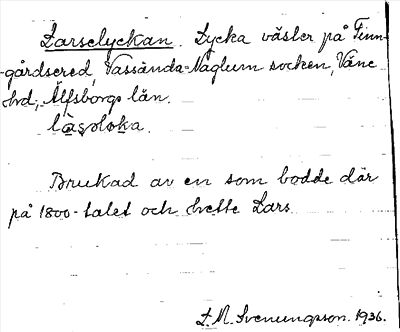 Larselyckan. Lycka väster på Finn-
gårdsered, Vassända-Naglum socken, Väne
hd, Älfsborgs län.
làsoloka.
Brukad av en som bodde där
på 1800-talet och hette Lars
L. M. Svenungsson. 1936.